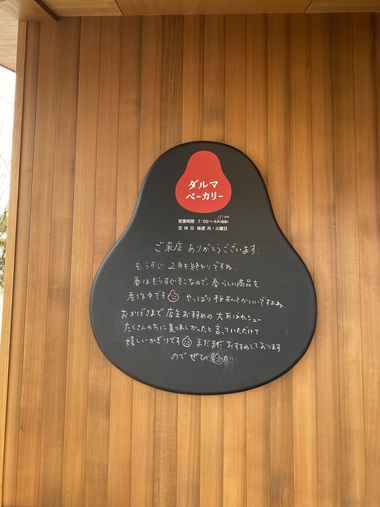 ダルマ
ベーカリー
営業時間 7:00〜17:00
定休日 毎週 月・火曜日
ご来店 ありがとうございます。
もうすぐ 2月も終わりですね。
春はもうすぐそこなので、春らしい商品を
考作中です やっぱり
おかげさまで 店主おすすめの 大あばれシュー
たくさんの方に美味しかったと言っていただけて
嬉しいかぎりです まだまだ おすすめしております
ので ぜひ